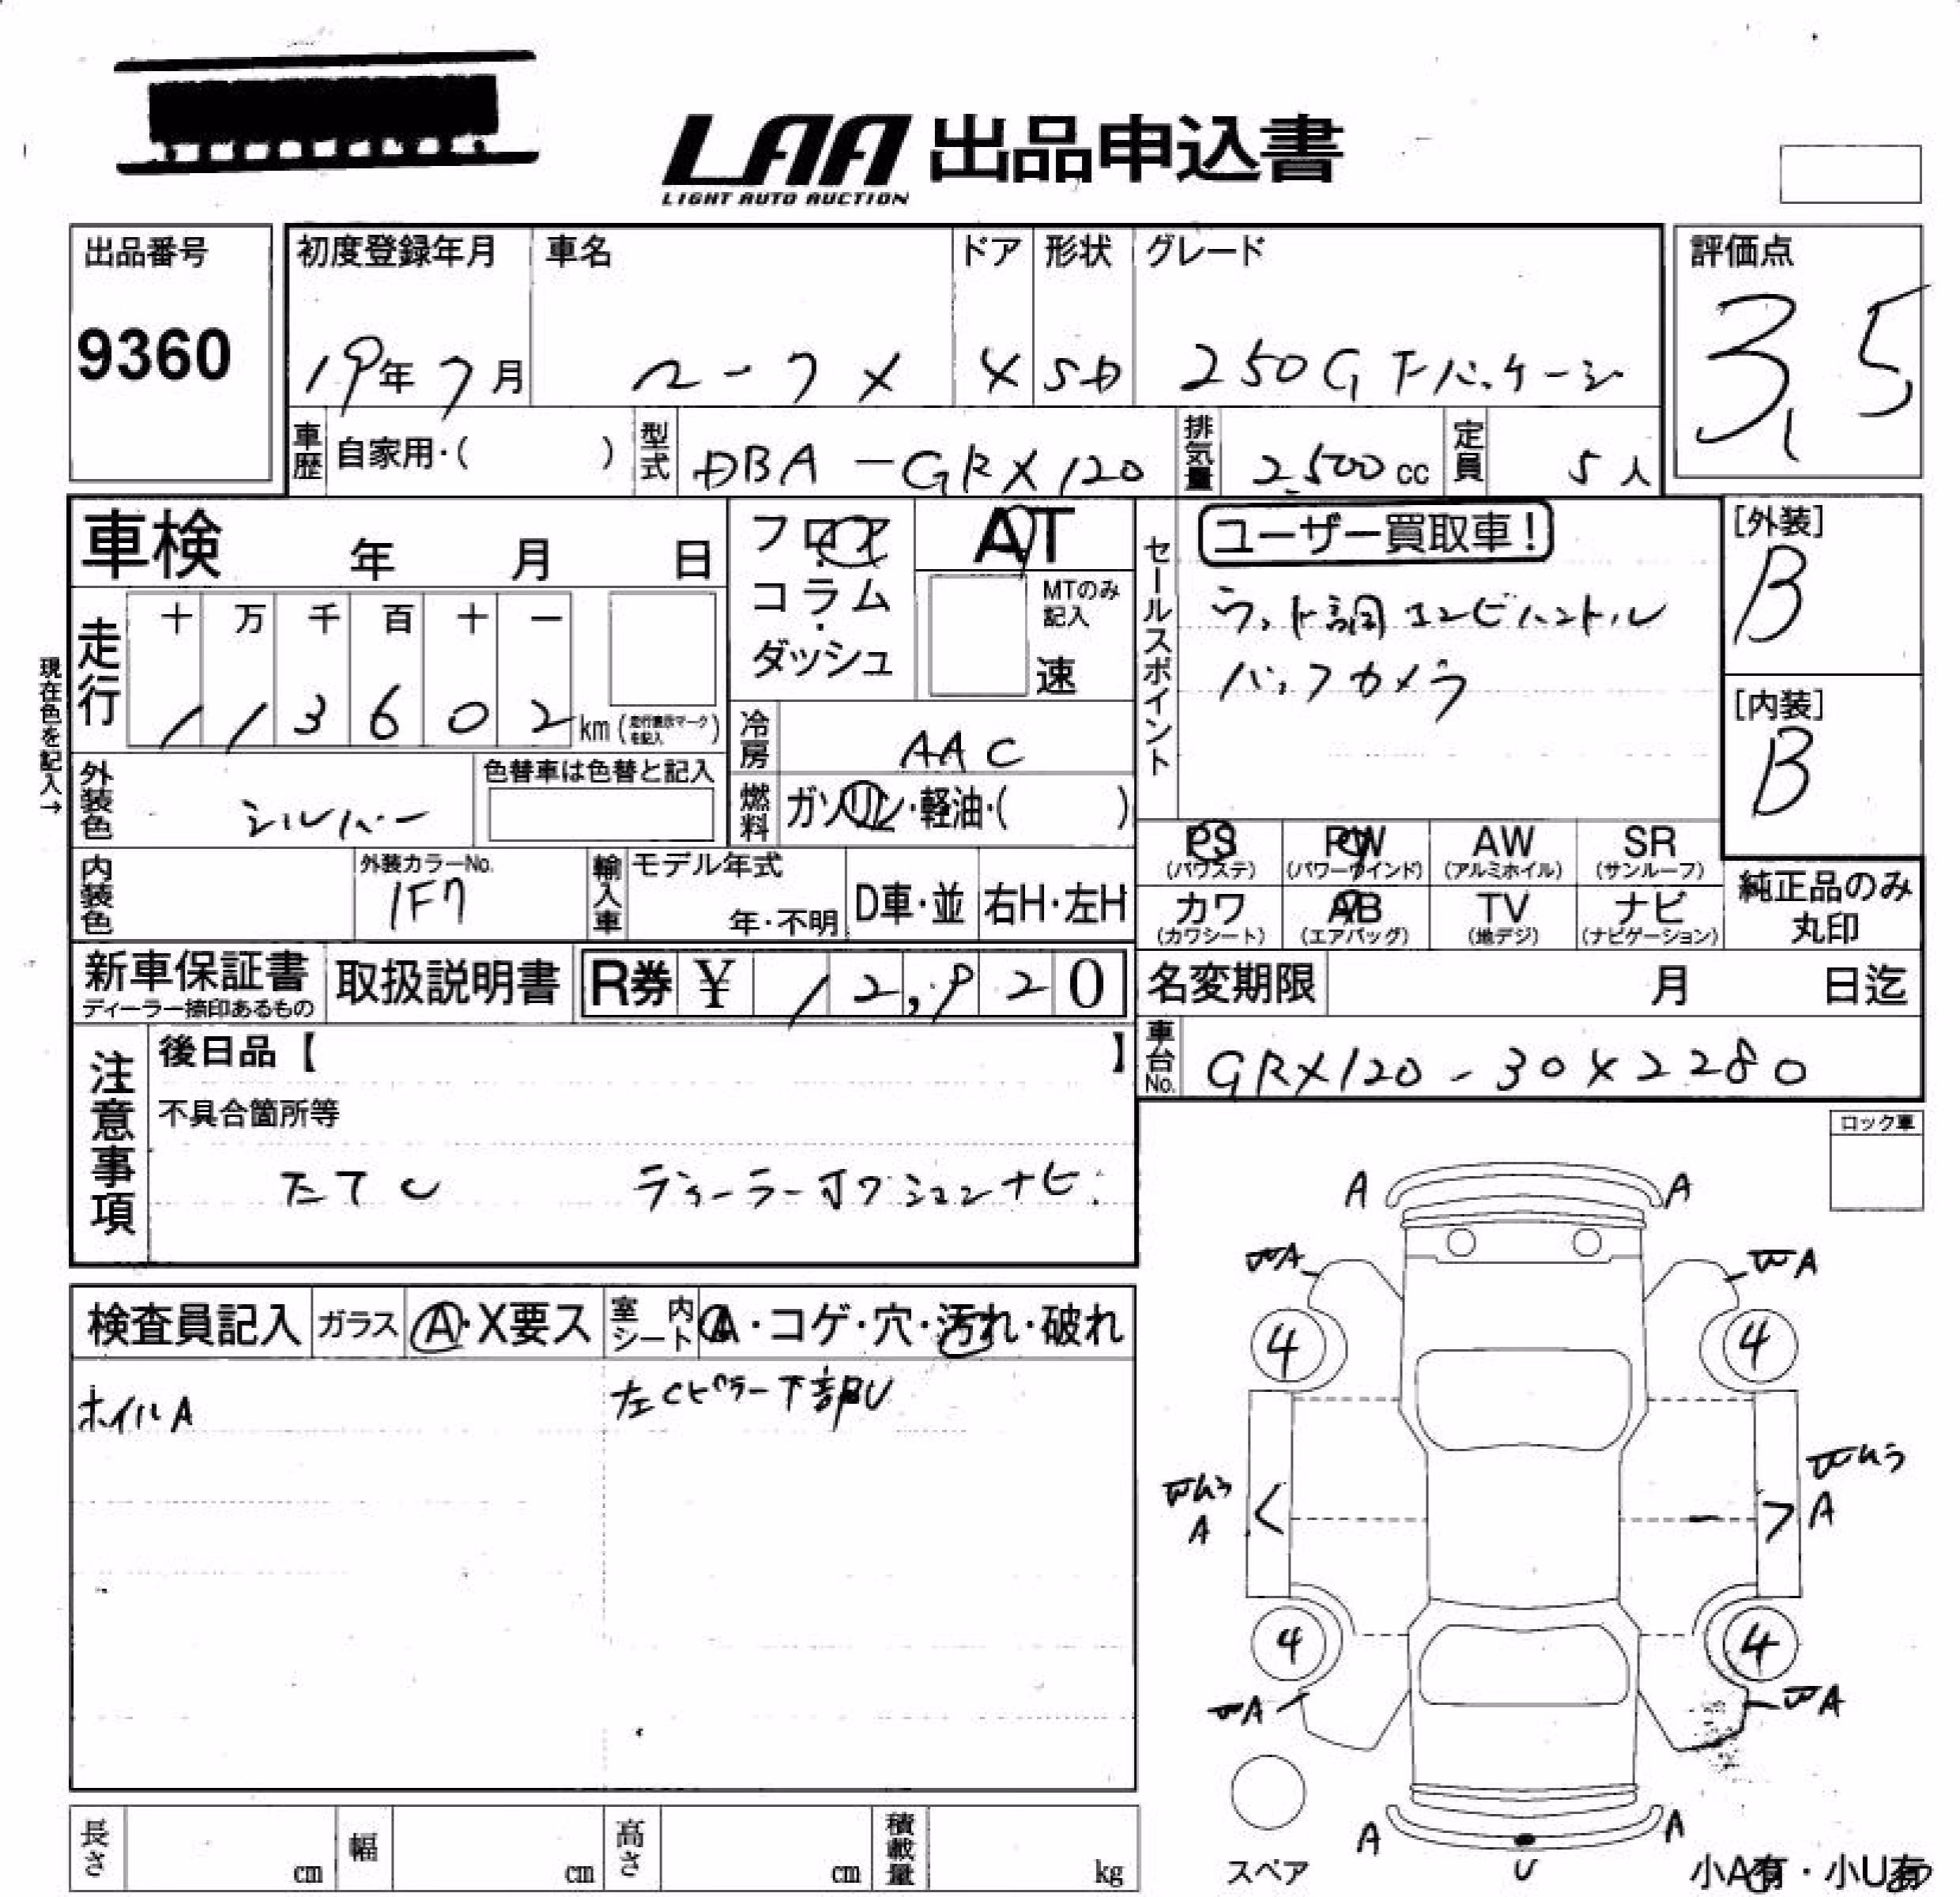 LAA 出品申込書
LIGHT AUTO AUCTION
出品番号
9360
初度登録年月
19年7月
車名
マークX
ドア
4
形状
SD
グレード
250G Fパッケージ
評価点
3.5
車歴
自家用・( )
型式
DBA-GRX120
排気量
2,500cc
定員
5人
車検 年 月 日
フロア
・
コラム
・
ダッシュ
AT
MTのみ
記入
速
セールスポイント
ユーザー買取車!
ウッド調コンビハンドル
バックカメラ
[外装]
B
[内装]
B
現在色を記入→
走行
十 万 千 百 十 一
1 1 3 6 0 2 km
(走行表示マークを記入)
冷房
AAC
外装色
シルバー
色替車は色替と記入
燃料
ガソリン・軽油・( )
内装色
外装カラーNo.
1F7
輸入車
モデル年式
年・不明
D車・並
右H・左H
PS
(パワステ)
PW
(パワーウインド)
AW
(アルミホイル)
SR
(サンルーフ)
カワ
(カワシート)
AB
(エアバッグ)
TV
(地デジ)
ナビ
(ナビゲーション)
純正品のみ
丸印
新車保証書
ディーラー捺印あるもの
取扱説明書
R券 ¥ 12,920
名変期限 月 日迄
車台No.
GRX120-3042280
注意事項
後日品【 】
不具合箇所等
ディーラーオプションナビ
ロック車
検査員記入
ガラス
A・X要ス
室内シート
A・コゲ・穴・汚れ・破れ
ホイルA
左Cピラー下部U
A A
A A
4 4
A A
4 4
A A
A A
U
スペア
小A有・小U有
長さ cm
幅 cm
高さ cm
積載量 kg